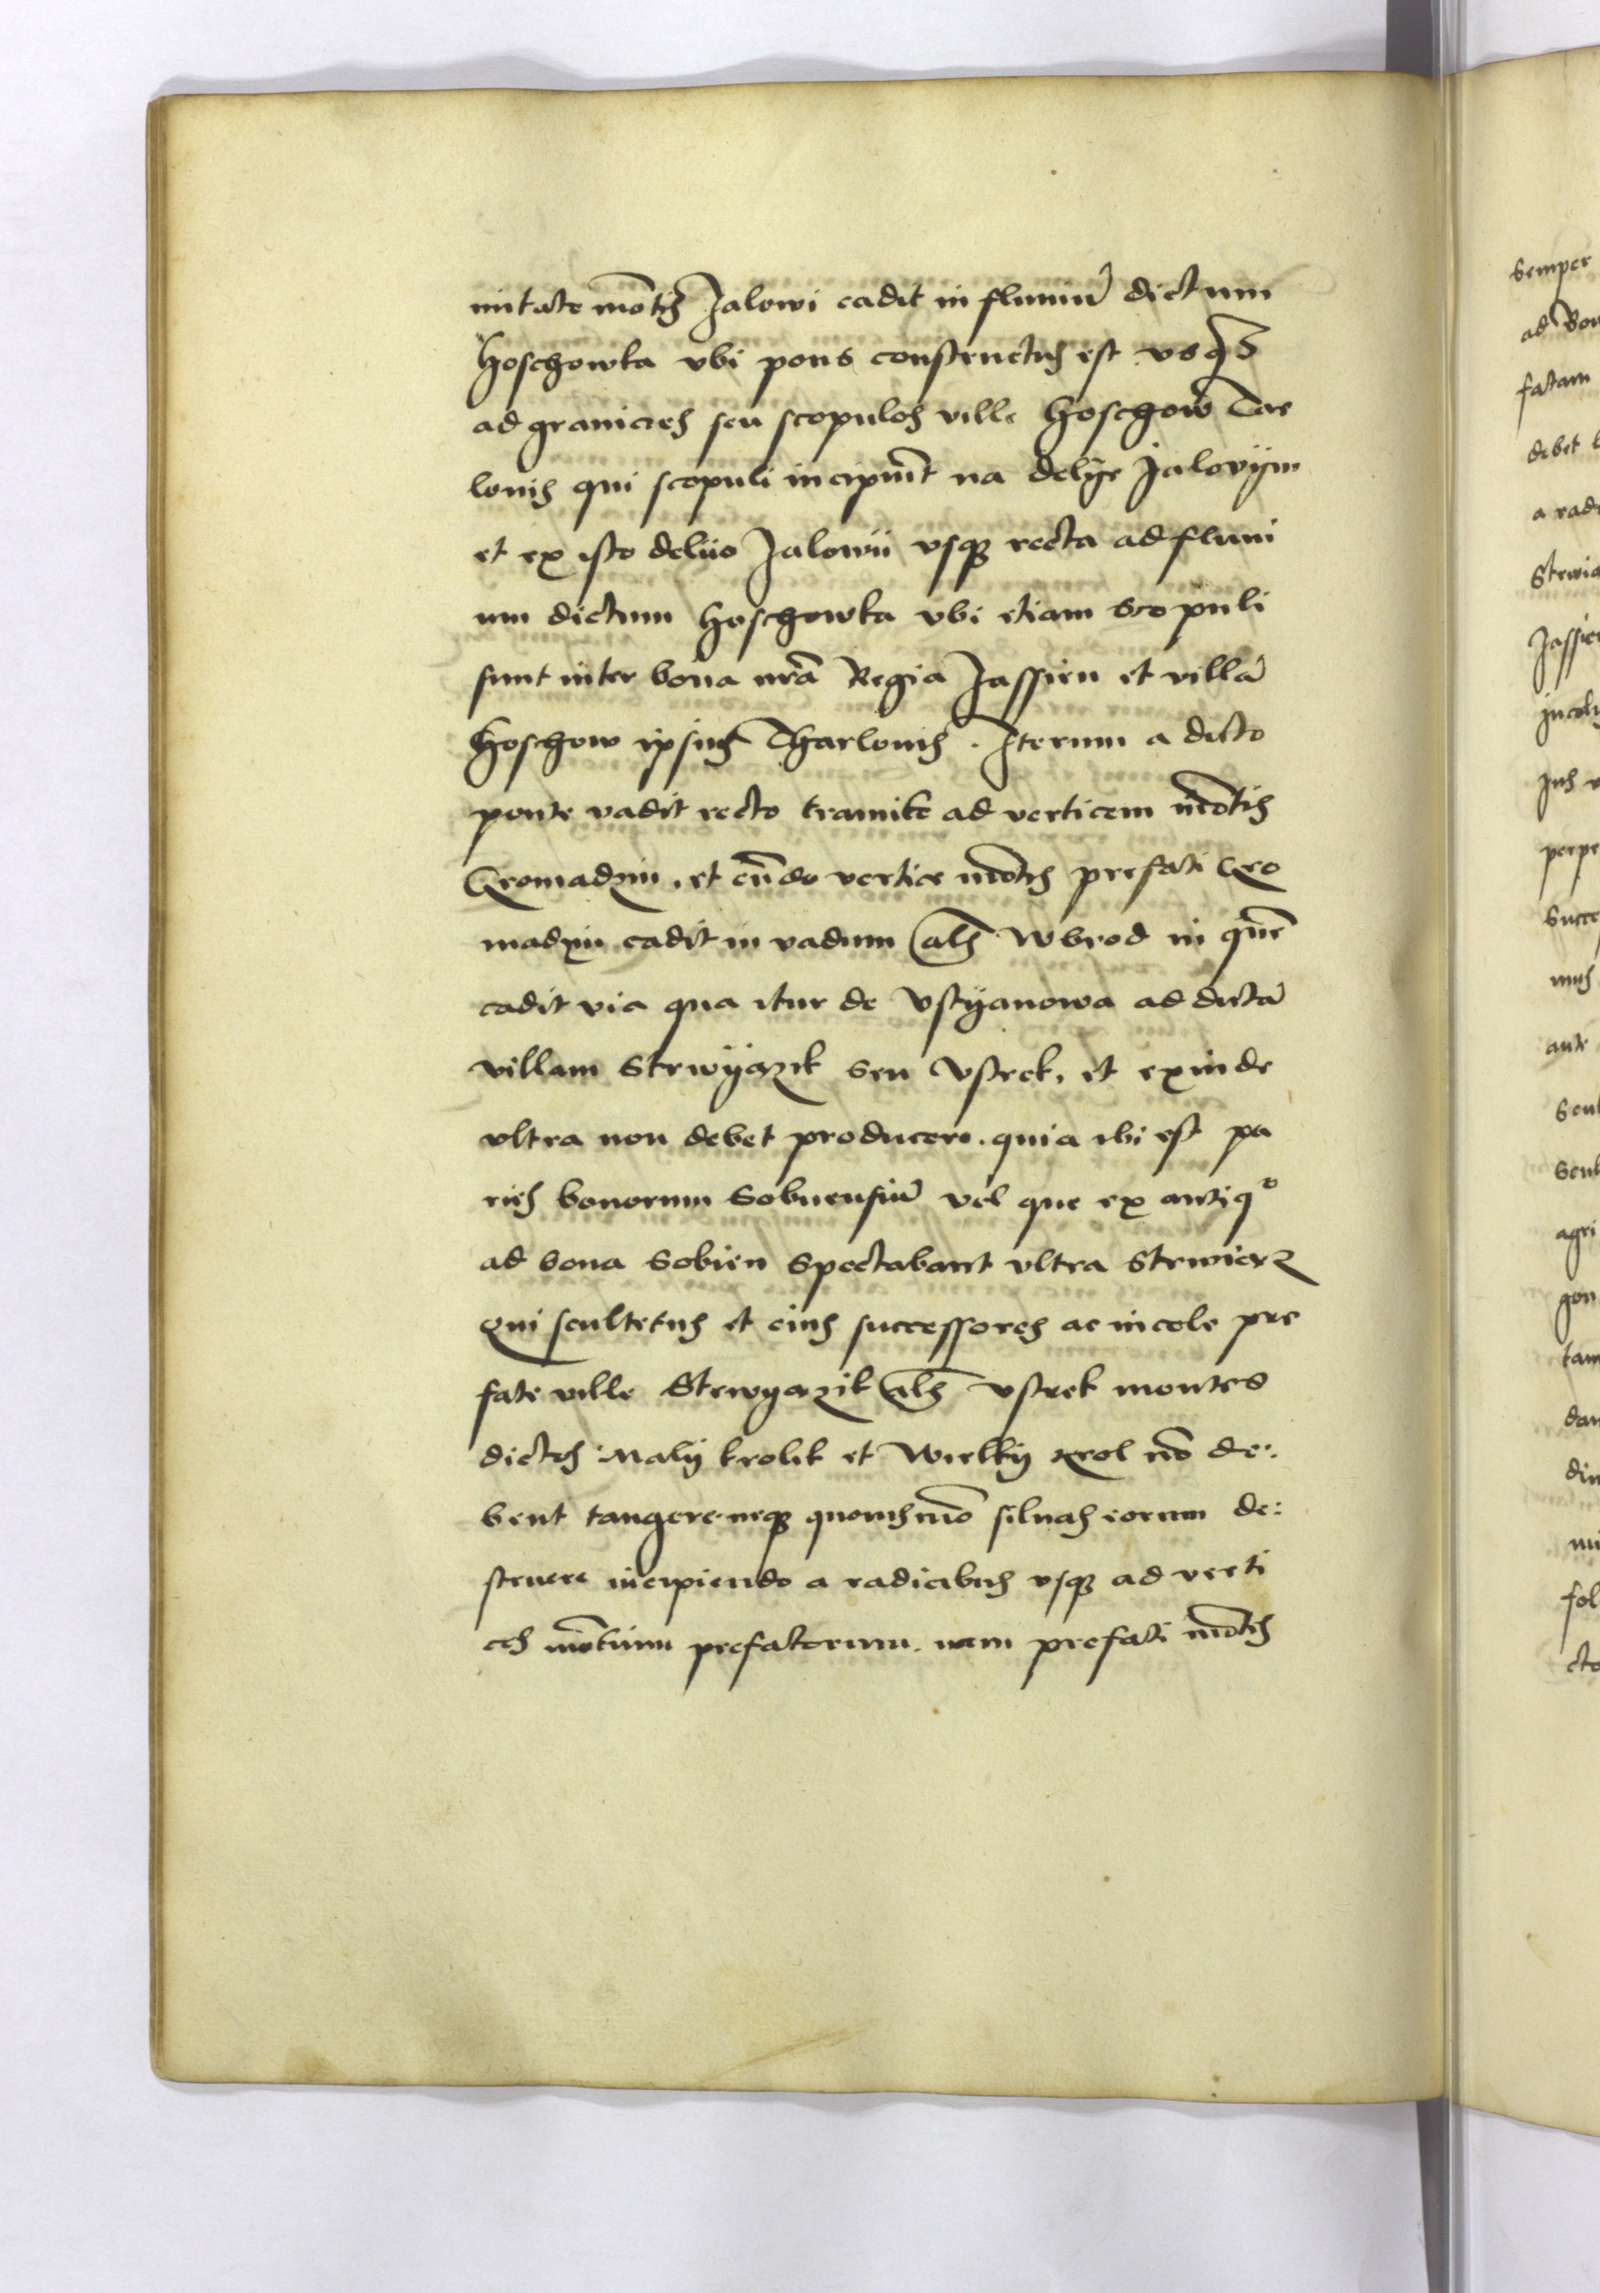 mitate mōtis Jalowi cadit in fluuiū dictum
Hoschowka vbi pons constructus est vsq3
ad granicies seu scopulos ville Hoschow Tar
lonis qui scopuli incipiūt na delye Jalovym
et ex isto deliio Jalowii vsq3 recta ad fluui
um dictum Hoschowka vbi etiam scopuli
sunt inter bona nrā Regia Jassien et villā
Hoschow ipsius Tharlonis . Iterum a dicto
ponte vadit recto tramite ad verticem mōtis
Gromadzin, et eūdo vertice mōtis prefati Gro
madzin cadit in vadum als Wbrod in quē
cadit via qua itur de Vstyanowa ad dictā
villam Strwyazik seu Vstrek, et exinde
vltra non debet producere . quia ibi est pa
ries bonorum Sobnensiū vel que ex antiqo
ad bona Sobien spectabant vltra Strwiaz
Qui scultetus et eius successores ac incole pre
fate ville Strwyazik als vstrek montes
dictos Maly krolik et Wielky krol nō de:
bent tangere neq3 quouismō siluas eorum de:
struere incipiendo a radicibus vsq3 ad verti
ces mōtium prefatorum . nam prefati mōtis
semper
fatam
debet
a radi
Jassien
perpe
ante
agri